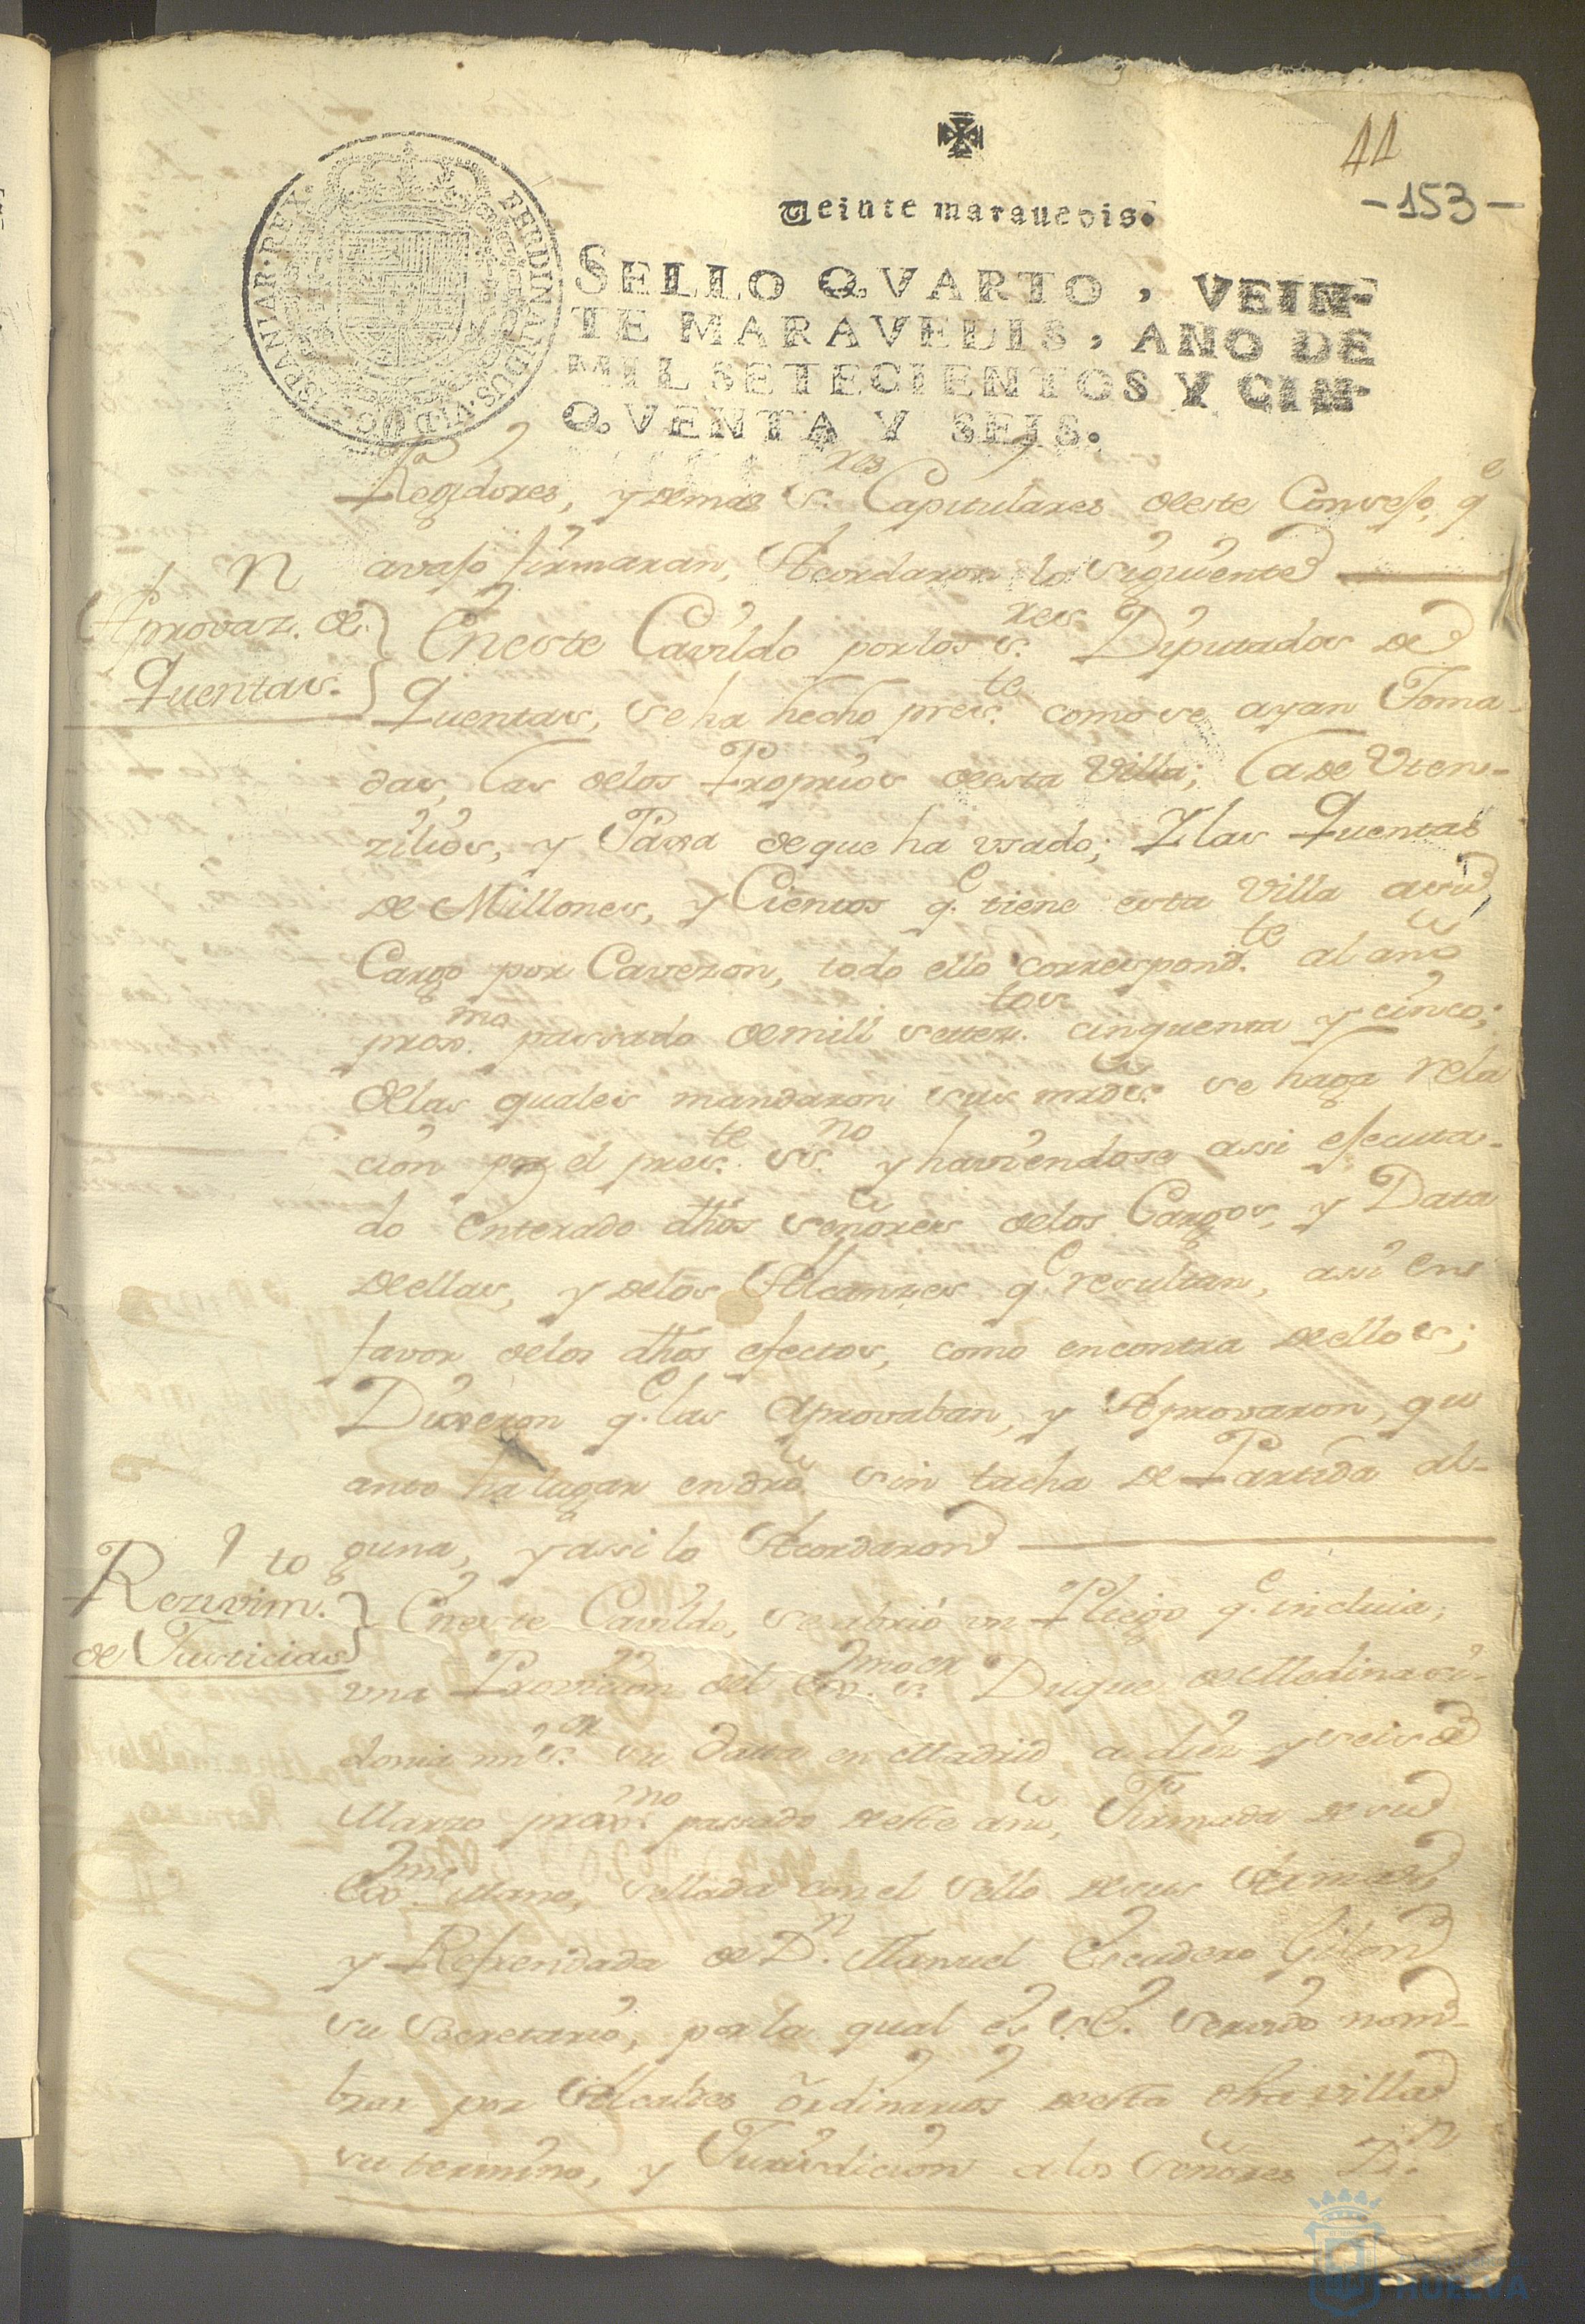 11
-153-
Veinte maravedis.
FERDINANDUS·VI·D·G·HISPANIAR·REX·
SELLO QVARTO, VEIN-
TE MARAVEDIS, AÑO DE
MIL SETECIENTOS Y CIN-
QVENTA Y SEIS.
Regidores, y demas s.res Capitulares deeste Consejo, q.e
avajo firmaran, Acordaron lo siguiente
Aprovaz.n de
Quentas.
En este Cavildo por los s.res Diputados de
Quentas, se ha hecho pres.te como se ayan Toma-
das, las delos Proprios deesta Villa; la de Vten-
zilios, y Paxa de que ha usado; Y las Quentas
de Millones, y Cientos q.e tiene esta Villa a su
Cargo por Cavezon, todo ello correspond.te al año
prox.mo passado de mill settez.tos cinquenta y cinco;
de las quales mandaron sus mrds se haga rela
cion por el pres.te ss.no y haviendose assi ejecuta-
do enterado dhos señores delos Cargos, y Data
de ellas, y delos Alcanzes q.e resultan, assi en
favor delos dhos efectos, como encontra de ellos;
Dixeron q.e las Aprovaban, y Aprovaron, qu
anto ha lugar en dro sin tacha de Partida al-
guna, y assi lo Acordaron
Rezivim.to
de Justicias
En este Cavildo, se abrio un Pliego q.e incluia,
una Provision del Ex.mo s.or Duque de Medinasi-
donia mi s.or su Data en Madrid a diez y seis de
Marzo prox.mo passado deeste año, Firmada de su
Ex.ma Mano, sellada con el sello de sus Armas
y Refrendada de D.n Manuel Escudero Gilon
su Secretario, por la qual es S.E. servido nom-
brar por Alcaldes ordinarios deesta dha villa
su termino, y Jurisdicion a los Señores D.n
HUELVA